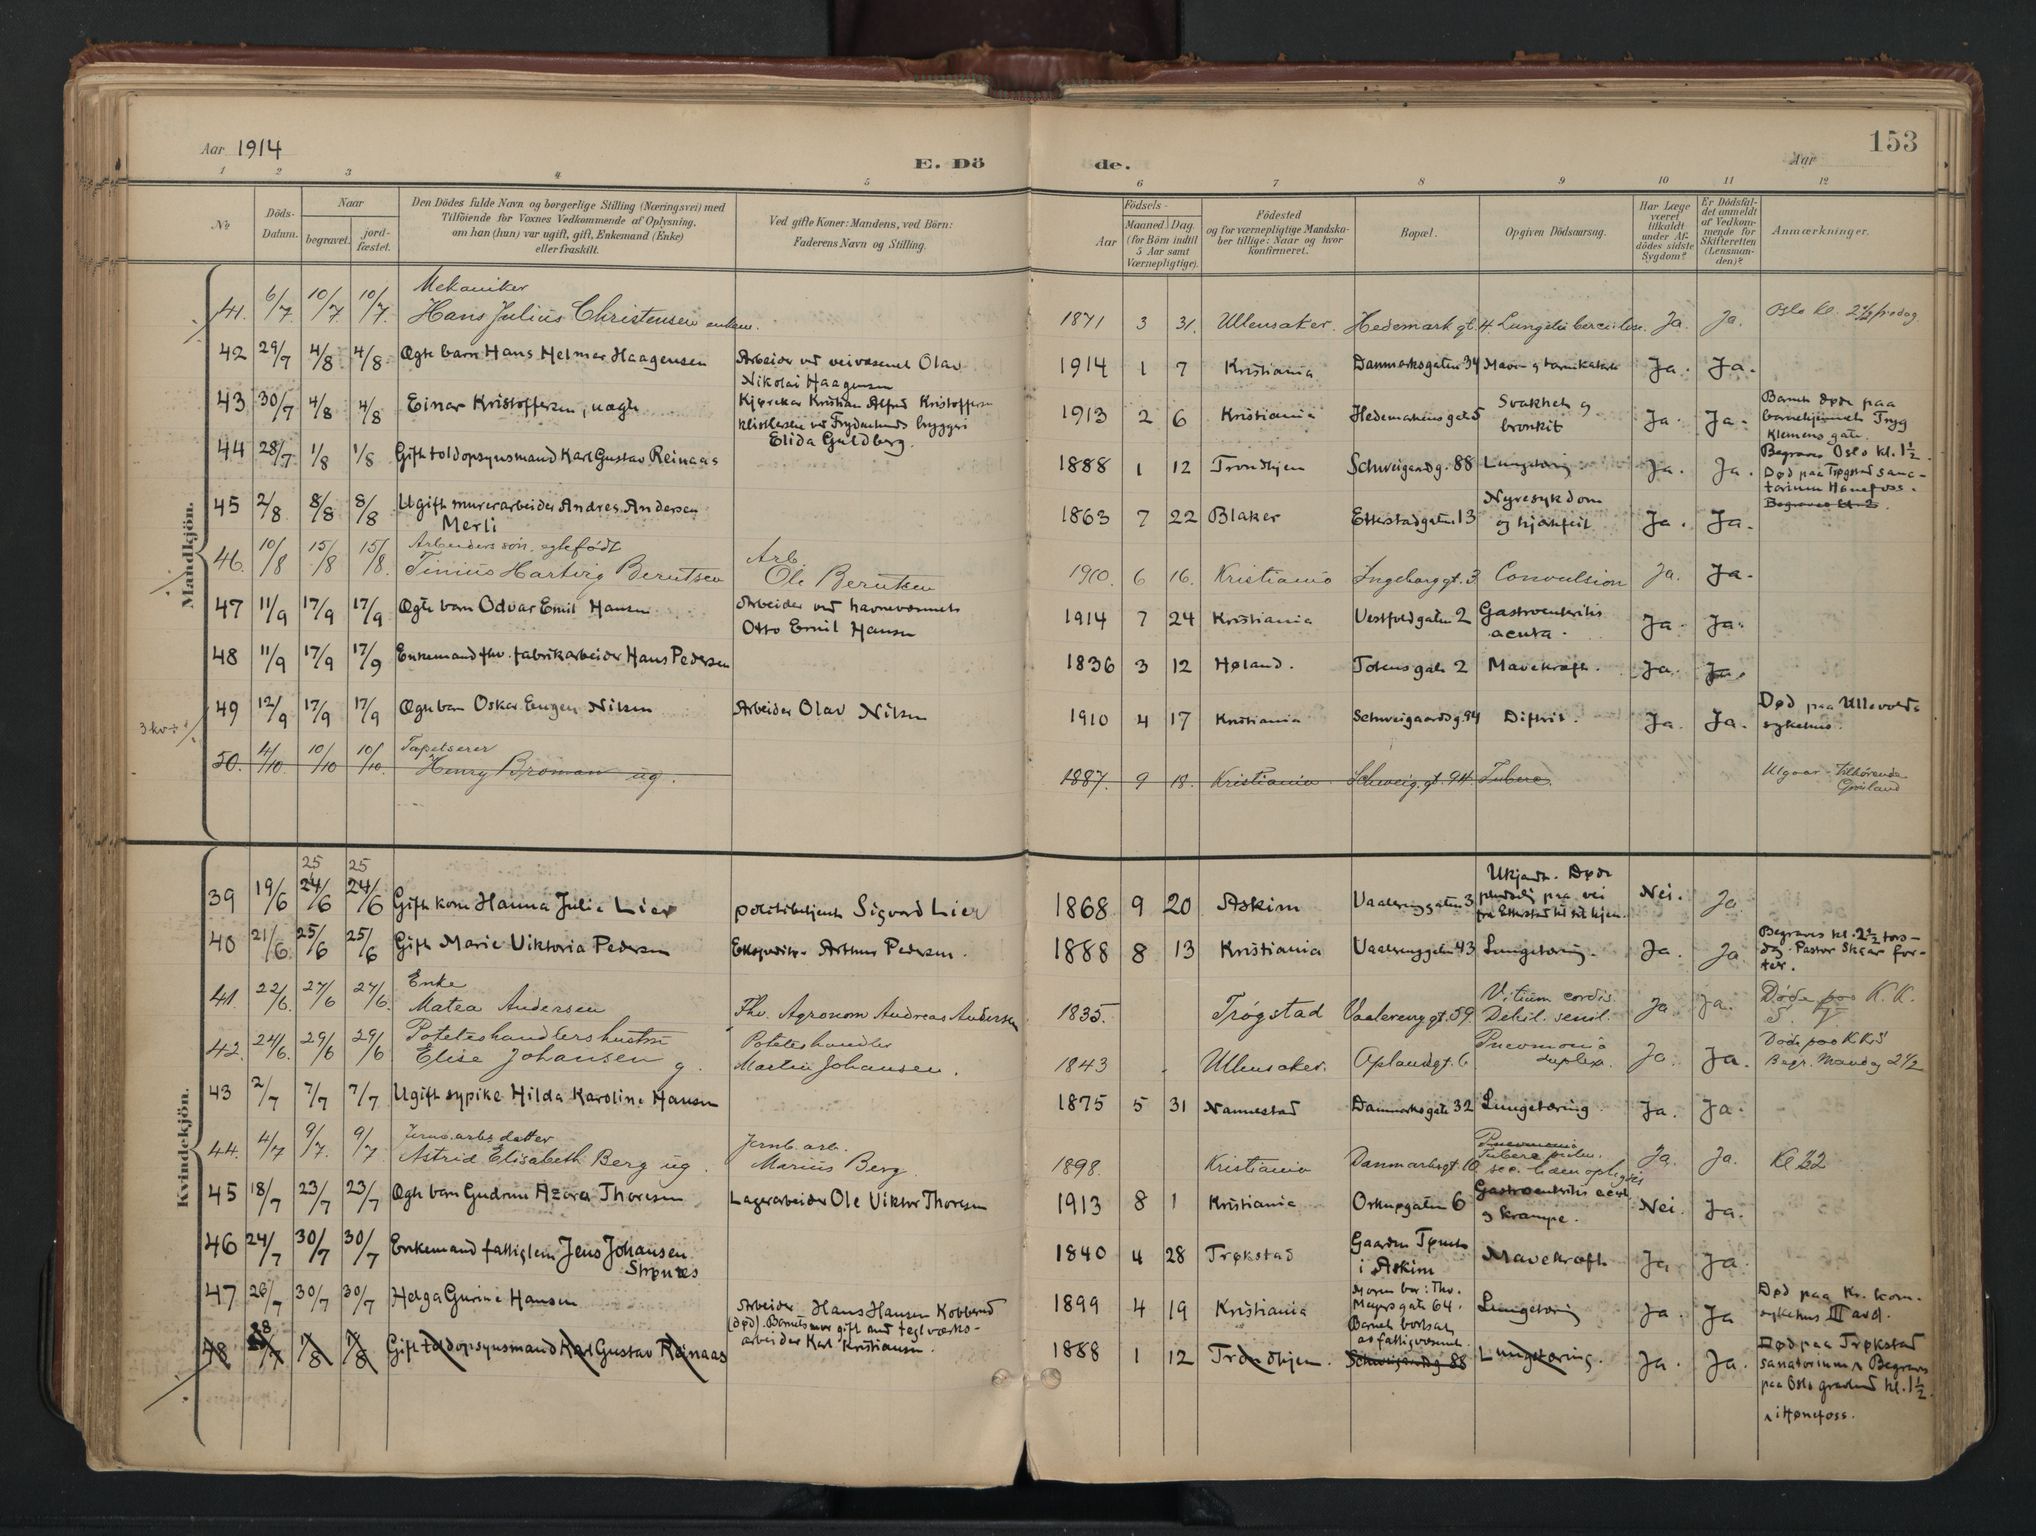 Aar 1914
E. Dö
de.
Aar
153
1 2 3 4 5 6 7 8 9 10 11 12
No
Döds-
Datum.
Naar
begravet.
jord-
fæstet.
Den Dödes fulde Navn og borgerlige Stilling (Næringsvei) med
Tilföiende for Voxnes Vedkommende af Oplysning.
om han (hun) var ugift, gift, Enkemand (Enke)
eller fraskilt.
Ved gifte Koner: Mandens, ved Börn:
Faderens Navn og Stilling.
Födsels-
Aar
Maaned
Dag.
(for Börn indtil
5 Aar samt
Værnepligtige).
Födested
og for værnepligtige Mandska-
ber tillige: Naar og hvor
konfirmeret.
Bopæl.
Opgiven Dödsaarsag.
Har Læge
været
tilkaldt
under Af-
dödes sidste
Sygdom?
Er Dödsfal-
det anmeldt
af Vedkom-
mende for
Skifteretten
(Lensman-
den)?
Anmærkninger.
Mandkjön.
Mekaniker
41. 6/7. 10/7 10/7. Hans Julius Christensen enkem. 1871 3 31. Ullensaker. Hedemark gt. 4 Lungetuberculose. Ja. Ja. Oslo kl. 2½ fredag
42 29/7 4/8 4/8 Ægte barn Hans Helmer Haagensen Arbeider ved veivæsenet Olav
Nikolai Haagensen
1914 1 7 Kristiania Danmarksgaten 34 Mave og tarmkatarh Ja. Ja.
43 30/7 4/8 4/8 Einar Kristoffersen, uægte Kjørekar Kristian Alfred Kristoffersen
Elida Guldberg.
1913 2 6 Kristiania Hedemarkens gate 5 Svakhet og
bronkit Ja. Ja. Barnet døde paa
barnehjemmet Tryg
Klemens gate.
44 28/7 1/8 1/8 Gift toldopsynsmand Karl Gustav Reinaas 1888 1 12 Trondhjem Schweigaardsg. 88 Lungetæring. Ja. Ja. Begraves Oslo kl. 1½.
Død paa Trøgstad sana-
torium Hønefoss.
45 2/8 8/8 8/8 Ugift murerarbeider Andres Andersen
Merli
1863 7 22 Blaker Etterstadgaten 13 Nyresykdom
og hjertefeil Ja. Ja. Begraves kl. 2
46. 10/8 15/8 15/8. Arbeiders søn, egtefødt
Tinius Hartvig Berntsen Arb.
Ole Berntsen
1910. 6 16. Kristiania Ingeborg gt. 3 Convulsion Ja. Ja.
47 11/9 17/9 17/9 Ægte barn Odvar Emil Hansen Arbeider ved havnevæsenet
Otto Emil Hansen
1914 7 24 Kristiania Vestfoldgaten 2 Gastroenteritis
acuta. Ja. Ja.
48 11/9 17/9 17/9 Enkemand fhv. fabrikarbeider Hans Pedersen 1836 3 12 Høland. Totens gate 2 Mavekræft. Ja. Ja.
49 12/9 17/9 17/9 Ægte barn Oskar Eugen Nilsen Arbeider Olav Nilsen 1910 4 17 Kristiania Schweigaardsg. 94 Difteri. Ja. Ja. Død paa Ullevold
sykehus.
50. 4/10. 10/10 10/10. Tapetserer
Henry Broman ug. 1887. 9 18. Kristiania Schweig. gt. 94. Tuberc. Utgaar - tilhørende
Grønland
Kvindekjön.
25 25
39 19/6 24/6 24/6 Gift kone Hanna Julie Lier politibetjent Sigvard Lier 1868 9 20 Askim Vaalerenggaten 3 Ukjendt. Døde
pludselig paa vei
fra Etterstad til sit hjem. Nei. Ja.
40 21/6 25/6 25/6 Gift Marie Viktoria Pedersen Ekspeditør Arthur Pedersen. 1888 8 13 Kristiania Vaalerenggaten 43 Lungetæring. Ja. Ja. Begraves kl. 2½ tors-
dag. Pastor Skaar for-
ter.
41. 22/6. 27/6 27/6 Enke
Matea Andersen Fhv. Agronom Andreas Andersen 1835. Trøgstad Vaalereng gt. 59. Vitium cordis.
Debil. senil. Ja. Ja. Døde paa K. K.
S.
42. 24/6. 29/6 29/6 Poteteshandlers hustru
Elise Johansen g. Poteteshandler
Martin Johansen. 1843 Ullensaker. Oplandgt. 6 Pneumonia
duplex. Ja. Ja. Døde paa K.K.S
Begr. Mandag 2½
43 2/7 7/7 7/7 Ugift sypike Hilda Karoline Hansen 1875 5 31 Nannestad Danmarksgate 32 Lungetæring. Ja. Ja.
44. 4/7 9/7. 9/7 Jernb. arbs datter
Astrid Elisabeth Berg ug. Jernb. arb.
Marius Berg. 1898. Kristiania Danmarksgt. 10 Pneumonia
Ja. Ja.
45 18/7 23/7 23/7 Ægte barn Gudrun Azora Thoresen Lagerarbeider Ole Viktor Thoresen 1913 8 1 Kristiania Orknøgaten 6 Gastroenteritis acut
og krampe. Nei. Ja.
46 24/7 30/7 30/7 Enkemand fattiglem Jens Johansen
Strønes 1840 4 28 Trøkstad Gaarden
i Askim Mavekræft Ja. Ja.
47 26/7 30/7 30/7 Helga Gurine Hansen Arbeider Hans Hansen Kobberud
(død). Barnets mor gift med teglværks-
arbeider Karl Kristiansen. 1899 4 19 Kristiania Moren bor: Thv.
Meyers gate 64.
Barnet bortsat
av fattigvæsenet. Lungetæring Ja. Ja Død paa Kr. kom.
sykehus III avd.
48 28/7 1/8 1/8 Gift toldopsynsmand Karl Gustav Reinaas 1888 1 12 Trondhjem. Schweigaardsg 88 Lungetæring. Ja. Ja. Død paa Trøkstad
sanatorium ^ Begraves
paa Oslo gravlund kl. 1½.
^ i Hønefoss.